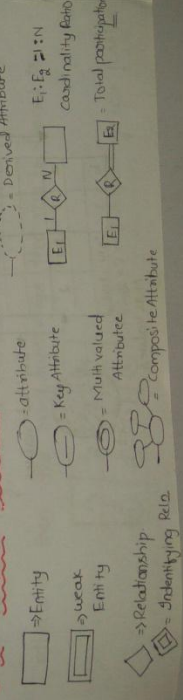 ⇒ Entity
⇒ weak
Entity
⇒ Relationship
= Indentifying Rela
= attribute
= Key Attribute
= Multivalued
Attributee
= Composite Attribute
= Derived Attribute
E1 1 R N
E1 : E2 ⇒ 1 : N
Cardinality Ratio
E1 R E2
= Total participation